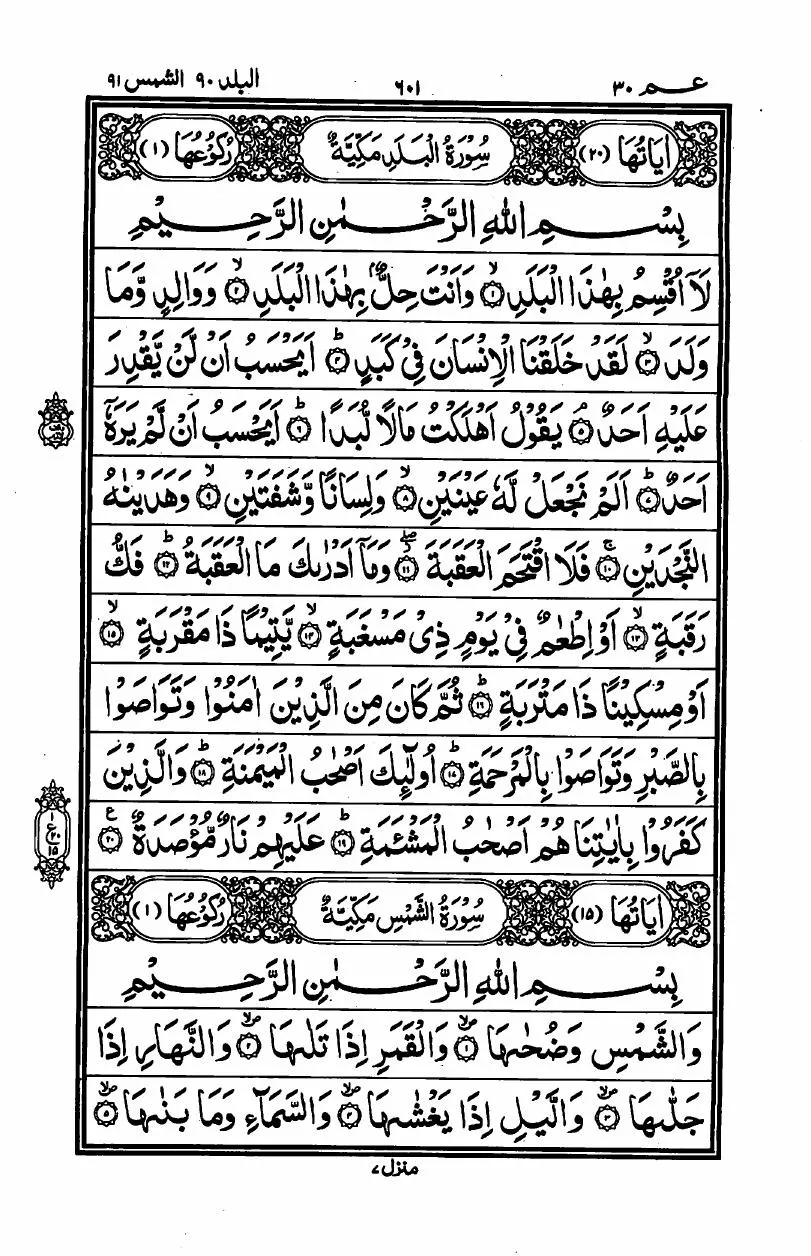 عــم ٣٠ ٦٠١ البلد ٩٠ الشمس ٩١
اٰيَاتُهَا (٢٠) سُوْرَةُ الْبَلَدِ مَكِّيَّةٌ رُكُوْعُهَا (١)
بِسْمِ اللّٰهِ الرَّحْمٰنِ الرَّحِيْمِ
لَاۤ اُقْسِمُ بِهٰذَا الْبَلَدِۙ ١ وَاَنْتَ حِلٌّۢ بِهٰذَا الْبَلَدِۙ ٢ وَوَالِدٍ وَّمَا
وَلَدَۙ ٣ لَقَدْ خَلَقْنَا الْاِنْسَانَ فِيْ كَبَدٍؕ ٤ اَيَحْسَبُ اَنْ لَّنْ يَّقْدِرَ
عَلَيْهِ اَحَدٌۘ ٥ يَقُوْلُ اَهْلَكْتُ مَالًا لُّبَدًاؕ ٦ اَيَحْسَبُ اَنْ لَّمْ يَرَهٗۤ
اَحَدٌؕ ٧ اَلَمْ نَجْعَلْ لَّهٗ عَيْنَيْنِۙ ٨ وَلِسَانًا وَّشَفَتَيْنِۙ ٩ وَهَدَيْنٰهُ
النَّجْدَيْنِۚ ١٠ فَلَا اقْتَحَمَ الْعَقَبَةَؗۖ ١١ وَمَاۤ اَدْرٰىكَ مَا الْعَقَبَةُؕ ١٢ فَكُّ
رَقَبَةٍۙ ١٣ اَوْ اِطْعٰمٌ فِيْ يَوْمٍ ذِيْ مَسْغَبَةٍۙ ١٤ يَّتِيْمًا ذَا مَقْرَبَةٍۙ ١٥
اَوْ مِسْكِيْنًا ذَا مَتْرَبَةٍؕ ١٦ ثُمَّ كَانَ مِنَ الَّذِيْنَ اٰمَنُوْا وَتَوَاصَوْا
بِالصَّبْرِ وَتَوَاصَوْا بِالْمَرْحَمَةِؕ ١٧ اُولٰٓئِكَ اَصْحٰبُ الْمَيْمَنَةِؕ ١٨ وَالَّذِيْنَ
كَفَرُوْا بِاٰيٰتِنَا هُمْ اَصْحٰبُ الْمَشْئَمَةِؕ ١٩ عَلَيْهِمْ نَارٌ مُّؤْصَدَةٌ ٢٠ ع
١
ع
٢٠
١٥
اٰيَاتُهَا (١٥) سُوْرَةُ الشَّمْسِ مَكِّيَّةٌ رُكُوْعُهَا (١)
بِسْمِ اللّٰهِ الرَّحْمٰنِ الرَّحِيْمِ
وَالشَّمْسِ وَضُحٰىهَا ١ وَالْقَمَرِ اِذَا تَلٰىهَا ٢ وَالنَّهَارِ اِذَا
جَلّٰىهَا ٣ وَالَّيْلِ اِذَا يَغْشٰىهَا ٤ وَالسَّمَآءِ وَمَا بَنٰىهَا ٥
منزل ٧